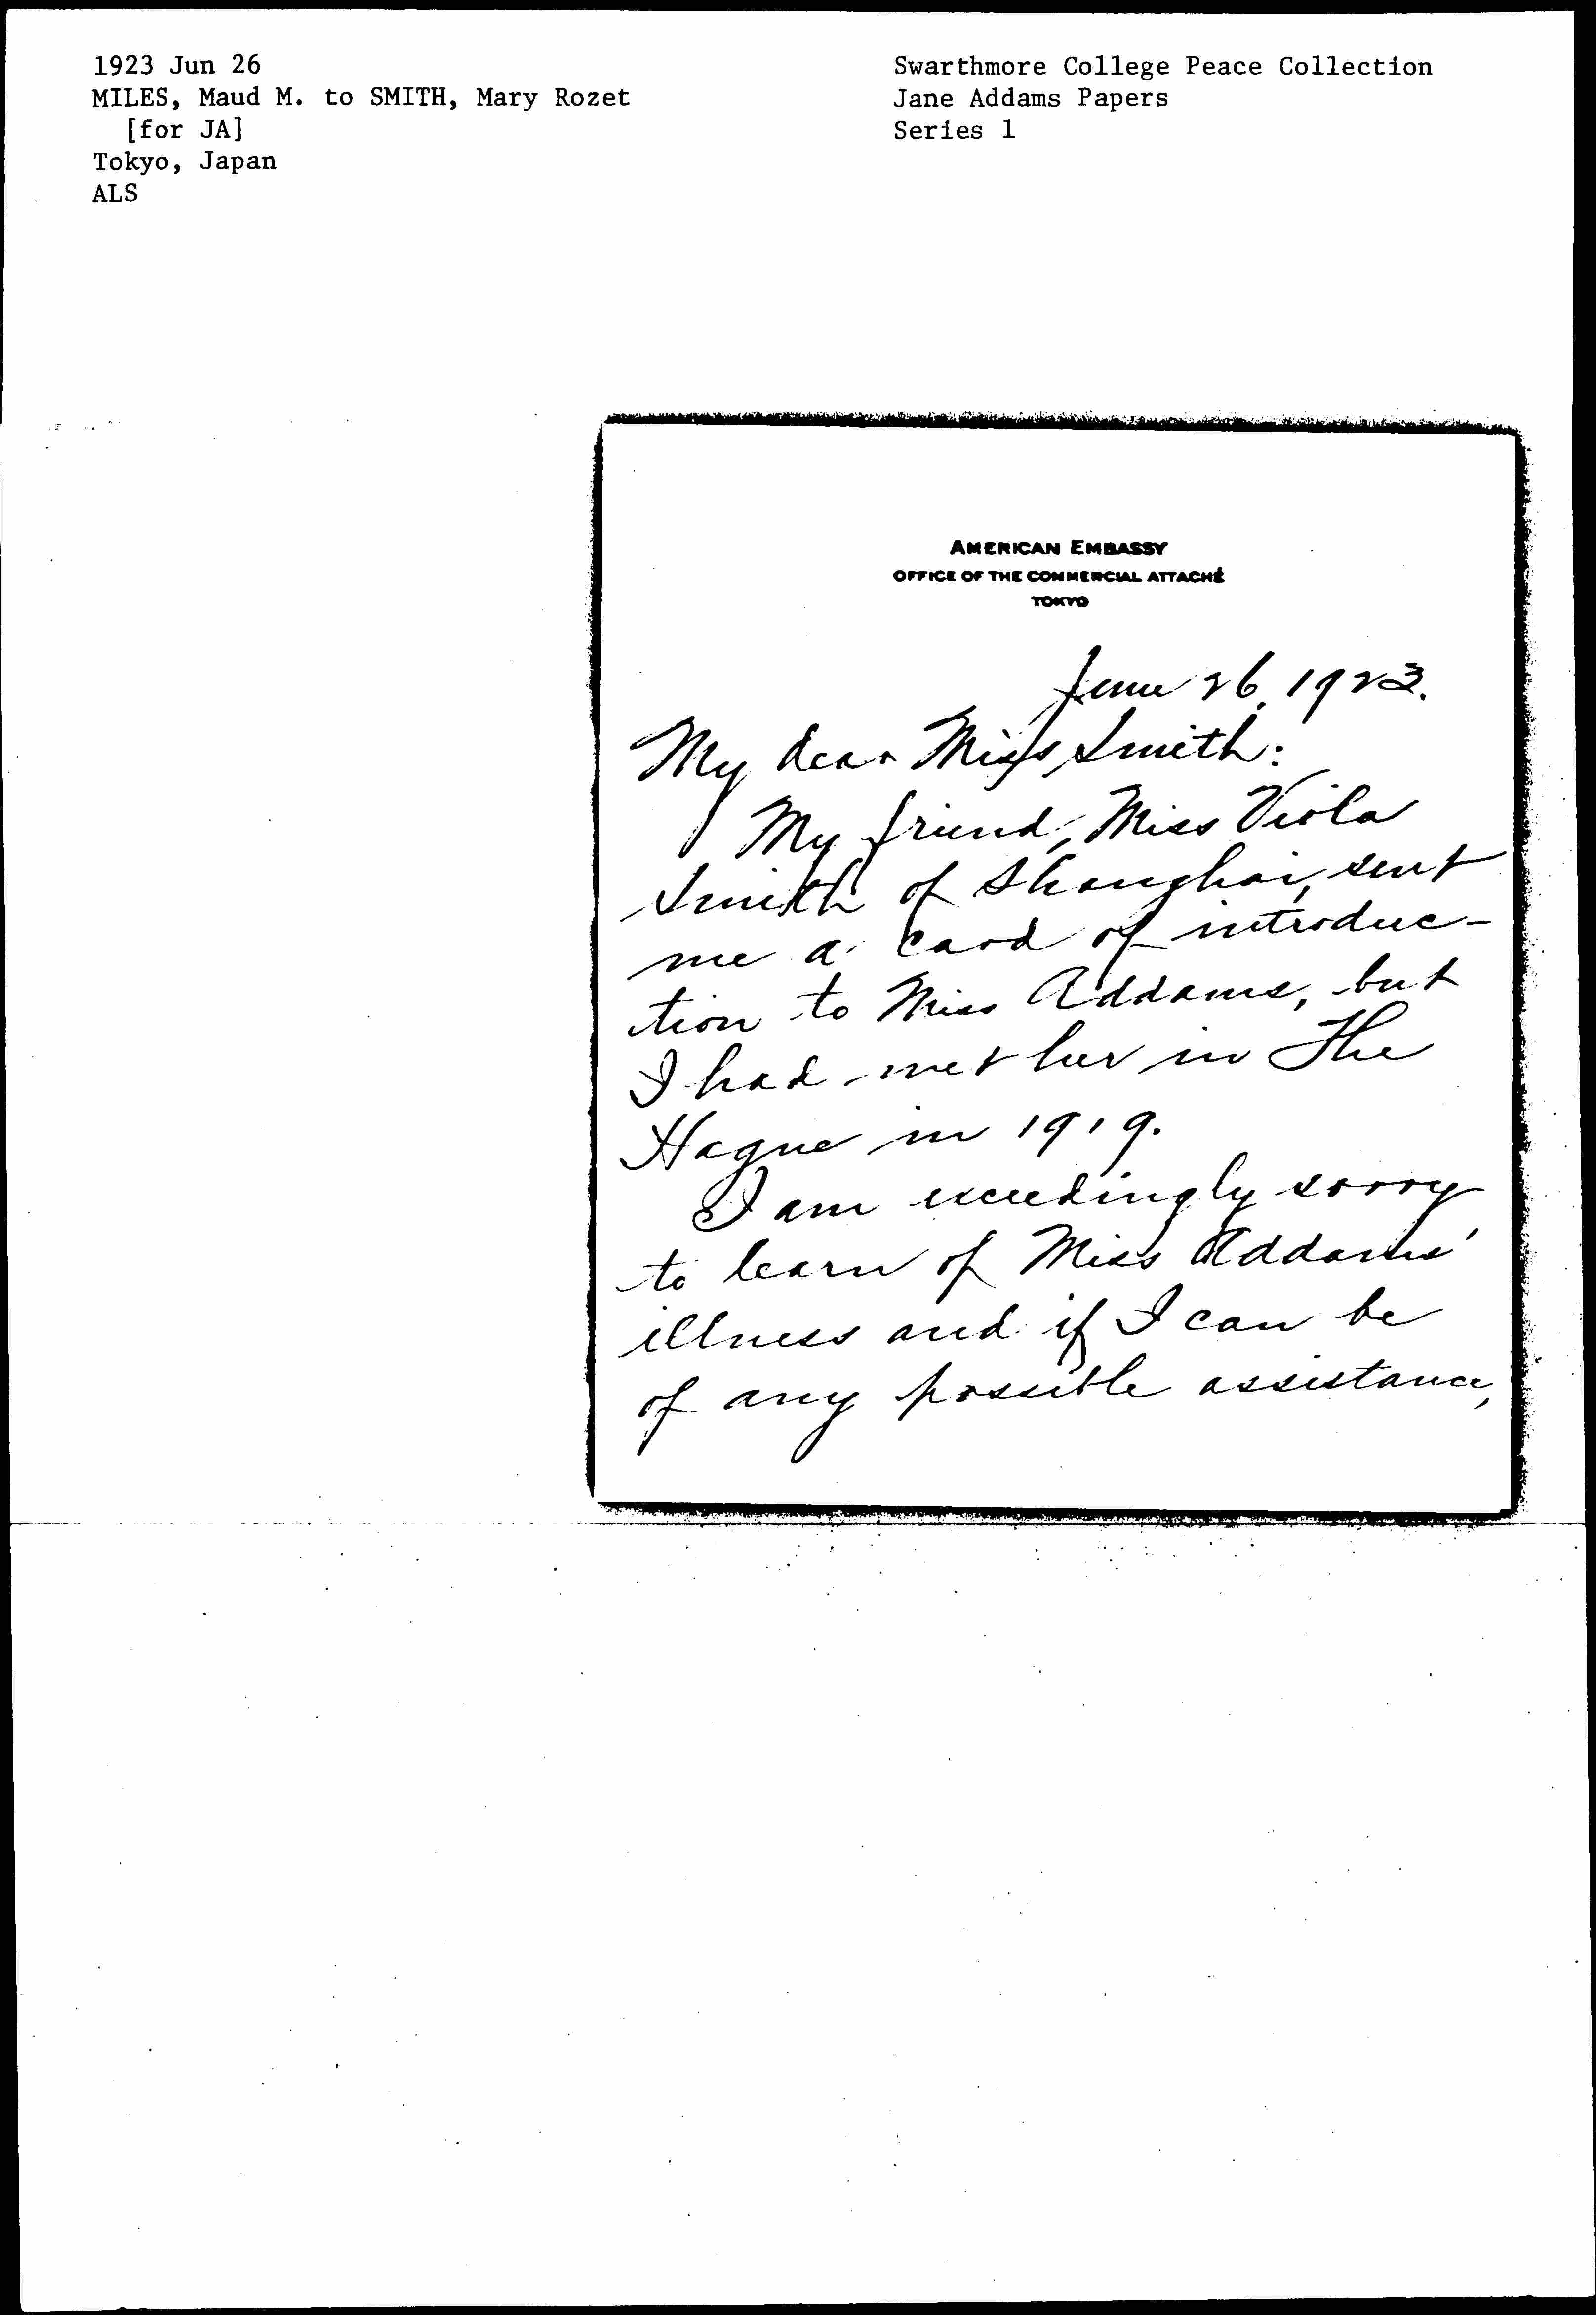 1923 Jun 26
MILES, Maud M. to SMITH, Mary Rozet
[for JA]
Tokyo, Japan
ALS
Swarthmore College Peace Collection
Jane Addams Papers
Series 1
AMERICAN EMBASSY
OFFICE OF THE COMMERCIAL ATTACHÉ
TOKYO
June 26, 1923.
My dear Miss Smith:
My friend, Miss Viola
Smith of Shanghai, sent
me a card of introduc-
tion to Miss Addams, but
I had met her in The
Hague in 1919.
I am exceedingly sorry
to learn of Miss Addams'
illness and if I can be
of any possible assistance,